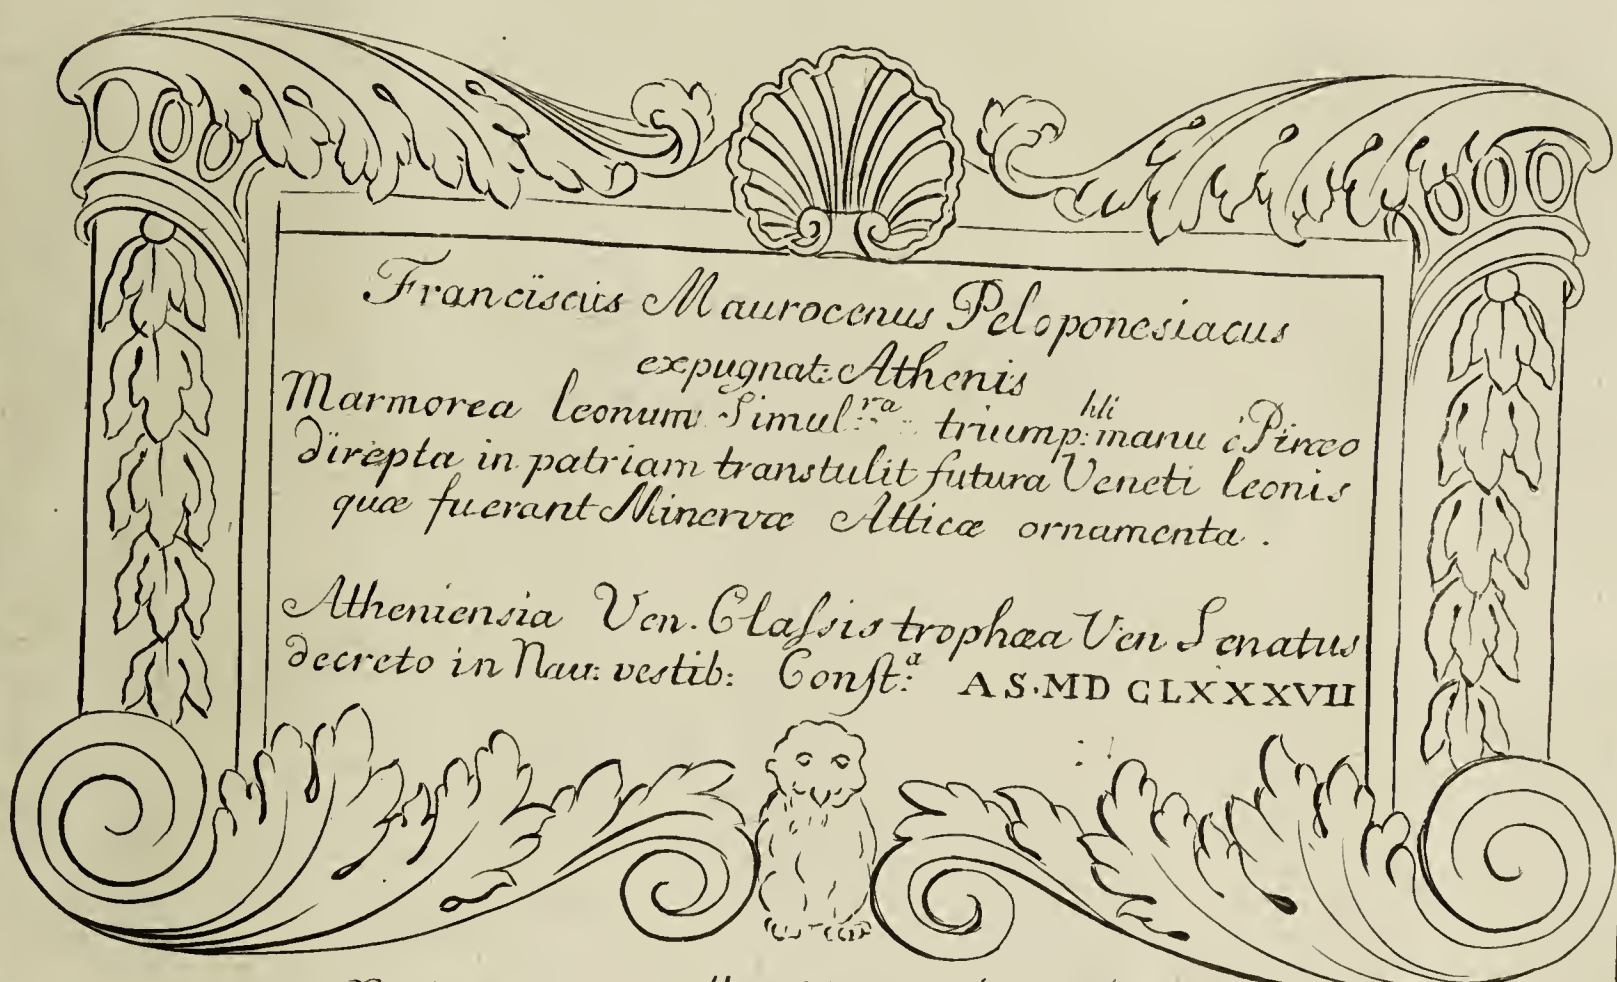 Franciscus Maurocenus Peloponesiacus
expugnat: Athenis
Marmorea leonum Simul:ra triump:hli manu è Piræo
direpta in patriam transtulit futura Veneti leonis
quæ fuerant Minervæ Atticæ ornamenta .
Atheniensia Ven. Claſsis trophæa Ven Senatus
decreto in Nau: vestib: Conſt:a AS·MDCLXXXVII